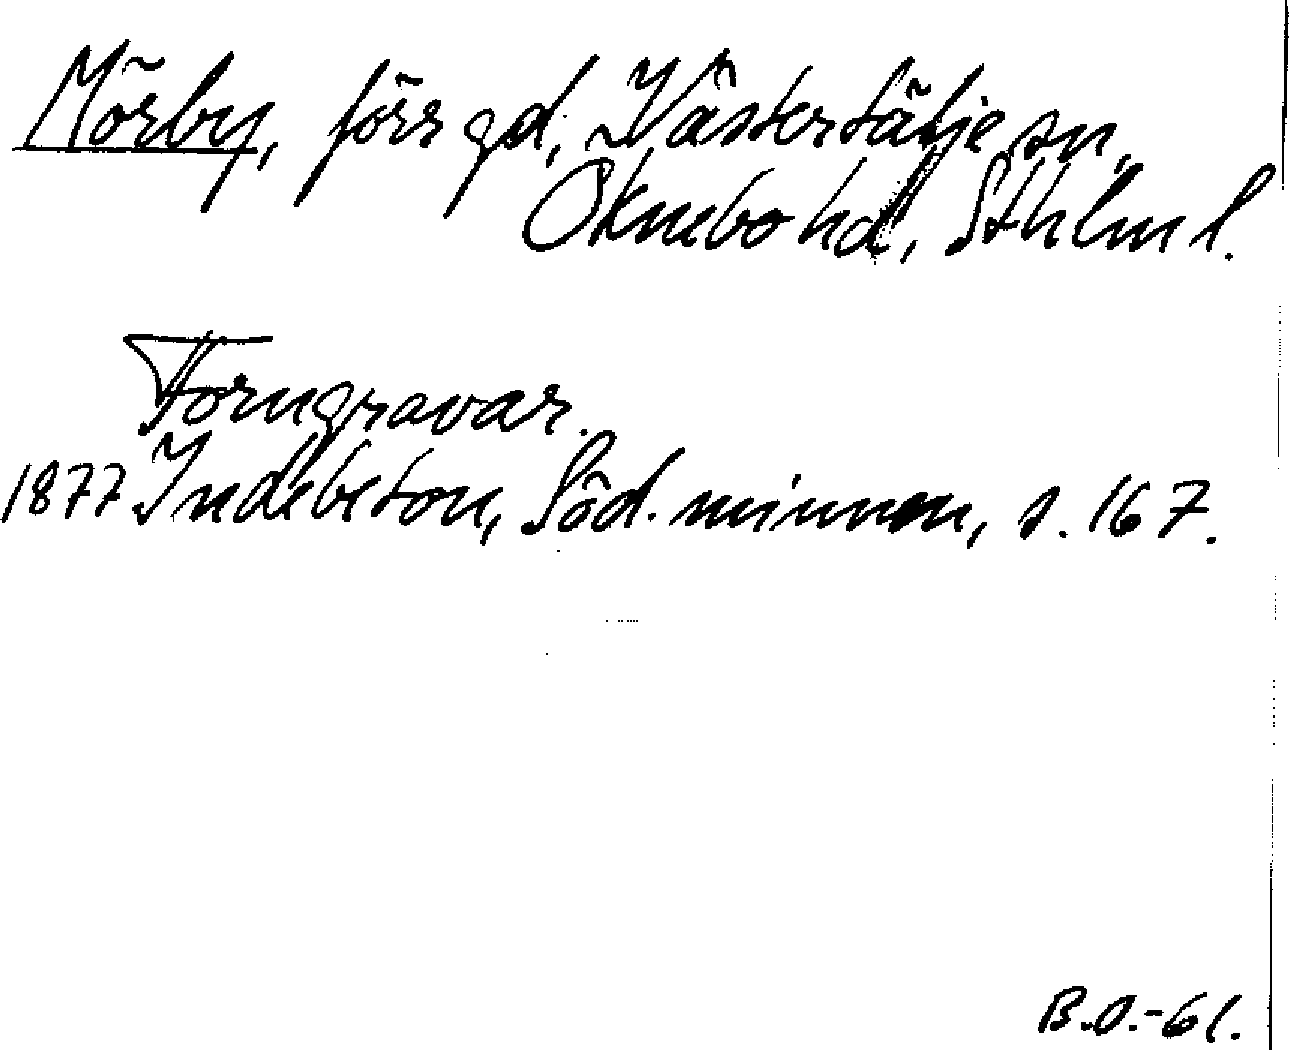 Mörby, förr gd, Västertälje sn,
Öknebo hd, Sthlm l.
Forngravar.
1877 Indebetou, Söd. minnen, s. 167.
B.O.-61.